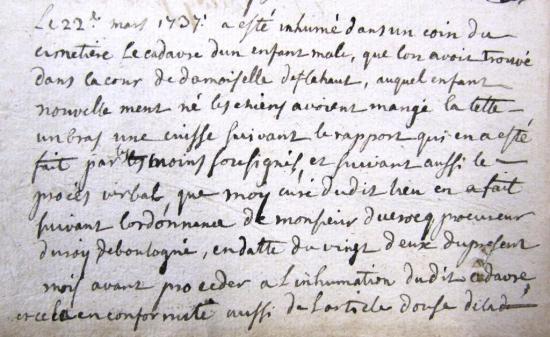 Le 22e mars 1737: a esté inhumé dans un coin du
cimetière Le cadavre dun enfant male, que lon avoit trouvé
dans la cour de damoiselle auquel enfant
nouvelle ment né les chiens avoient mangé la tette
un bras une cuisse suivant le rapport qui en a esté
fait par les temoins sousignés, et suivant aussi le
procès verbal que moy curé dudit lieu en a fait
suivant lordonnance de monsieur procureur
du roy de boulogne, en datte du vingt deux du présent
mois avant proceder a Linhumation dudit cadavre
et cela en conformité aussi de Larticle douse